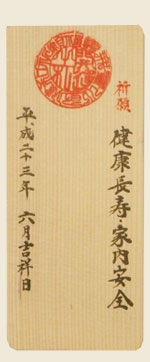 祈願
健康長寿・家内安全
平成二十三年 六月吉祥日